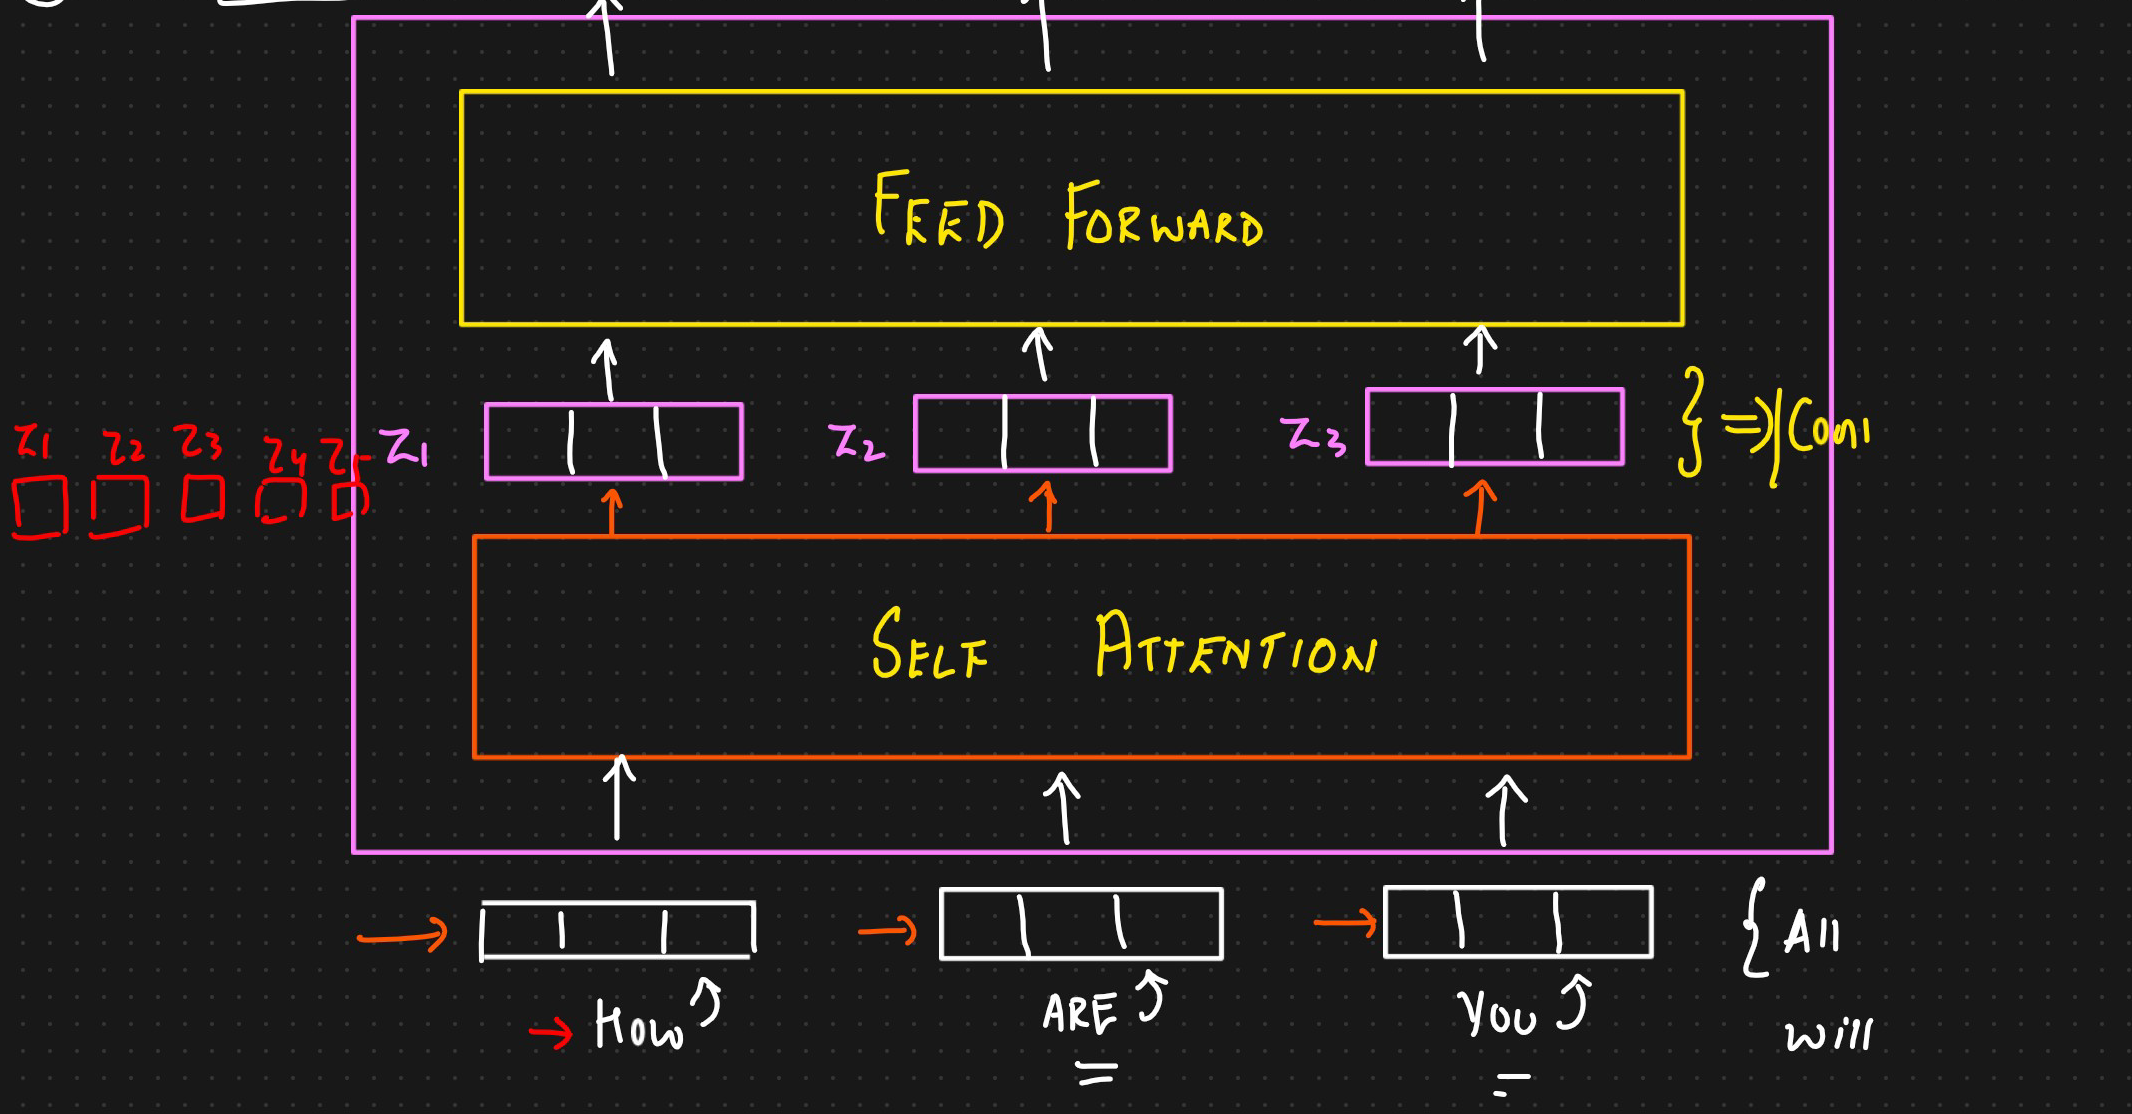 FEED FORWARD
z1 z2 z3 z4 z5
z1 z2 z3 } => Con
SELF ATTENTION
{ All
→ HOW ARE YOU
will